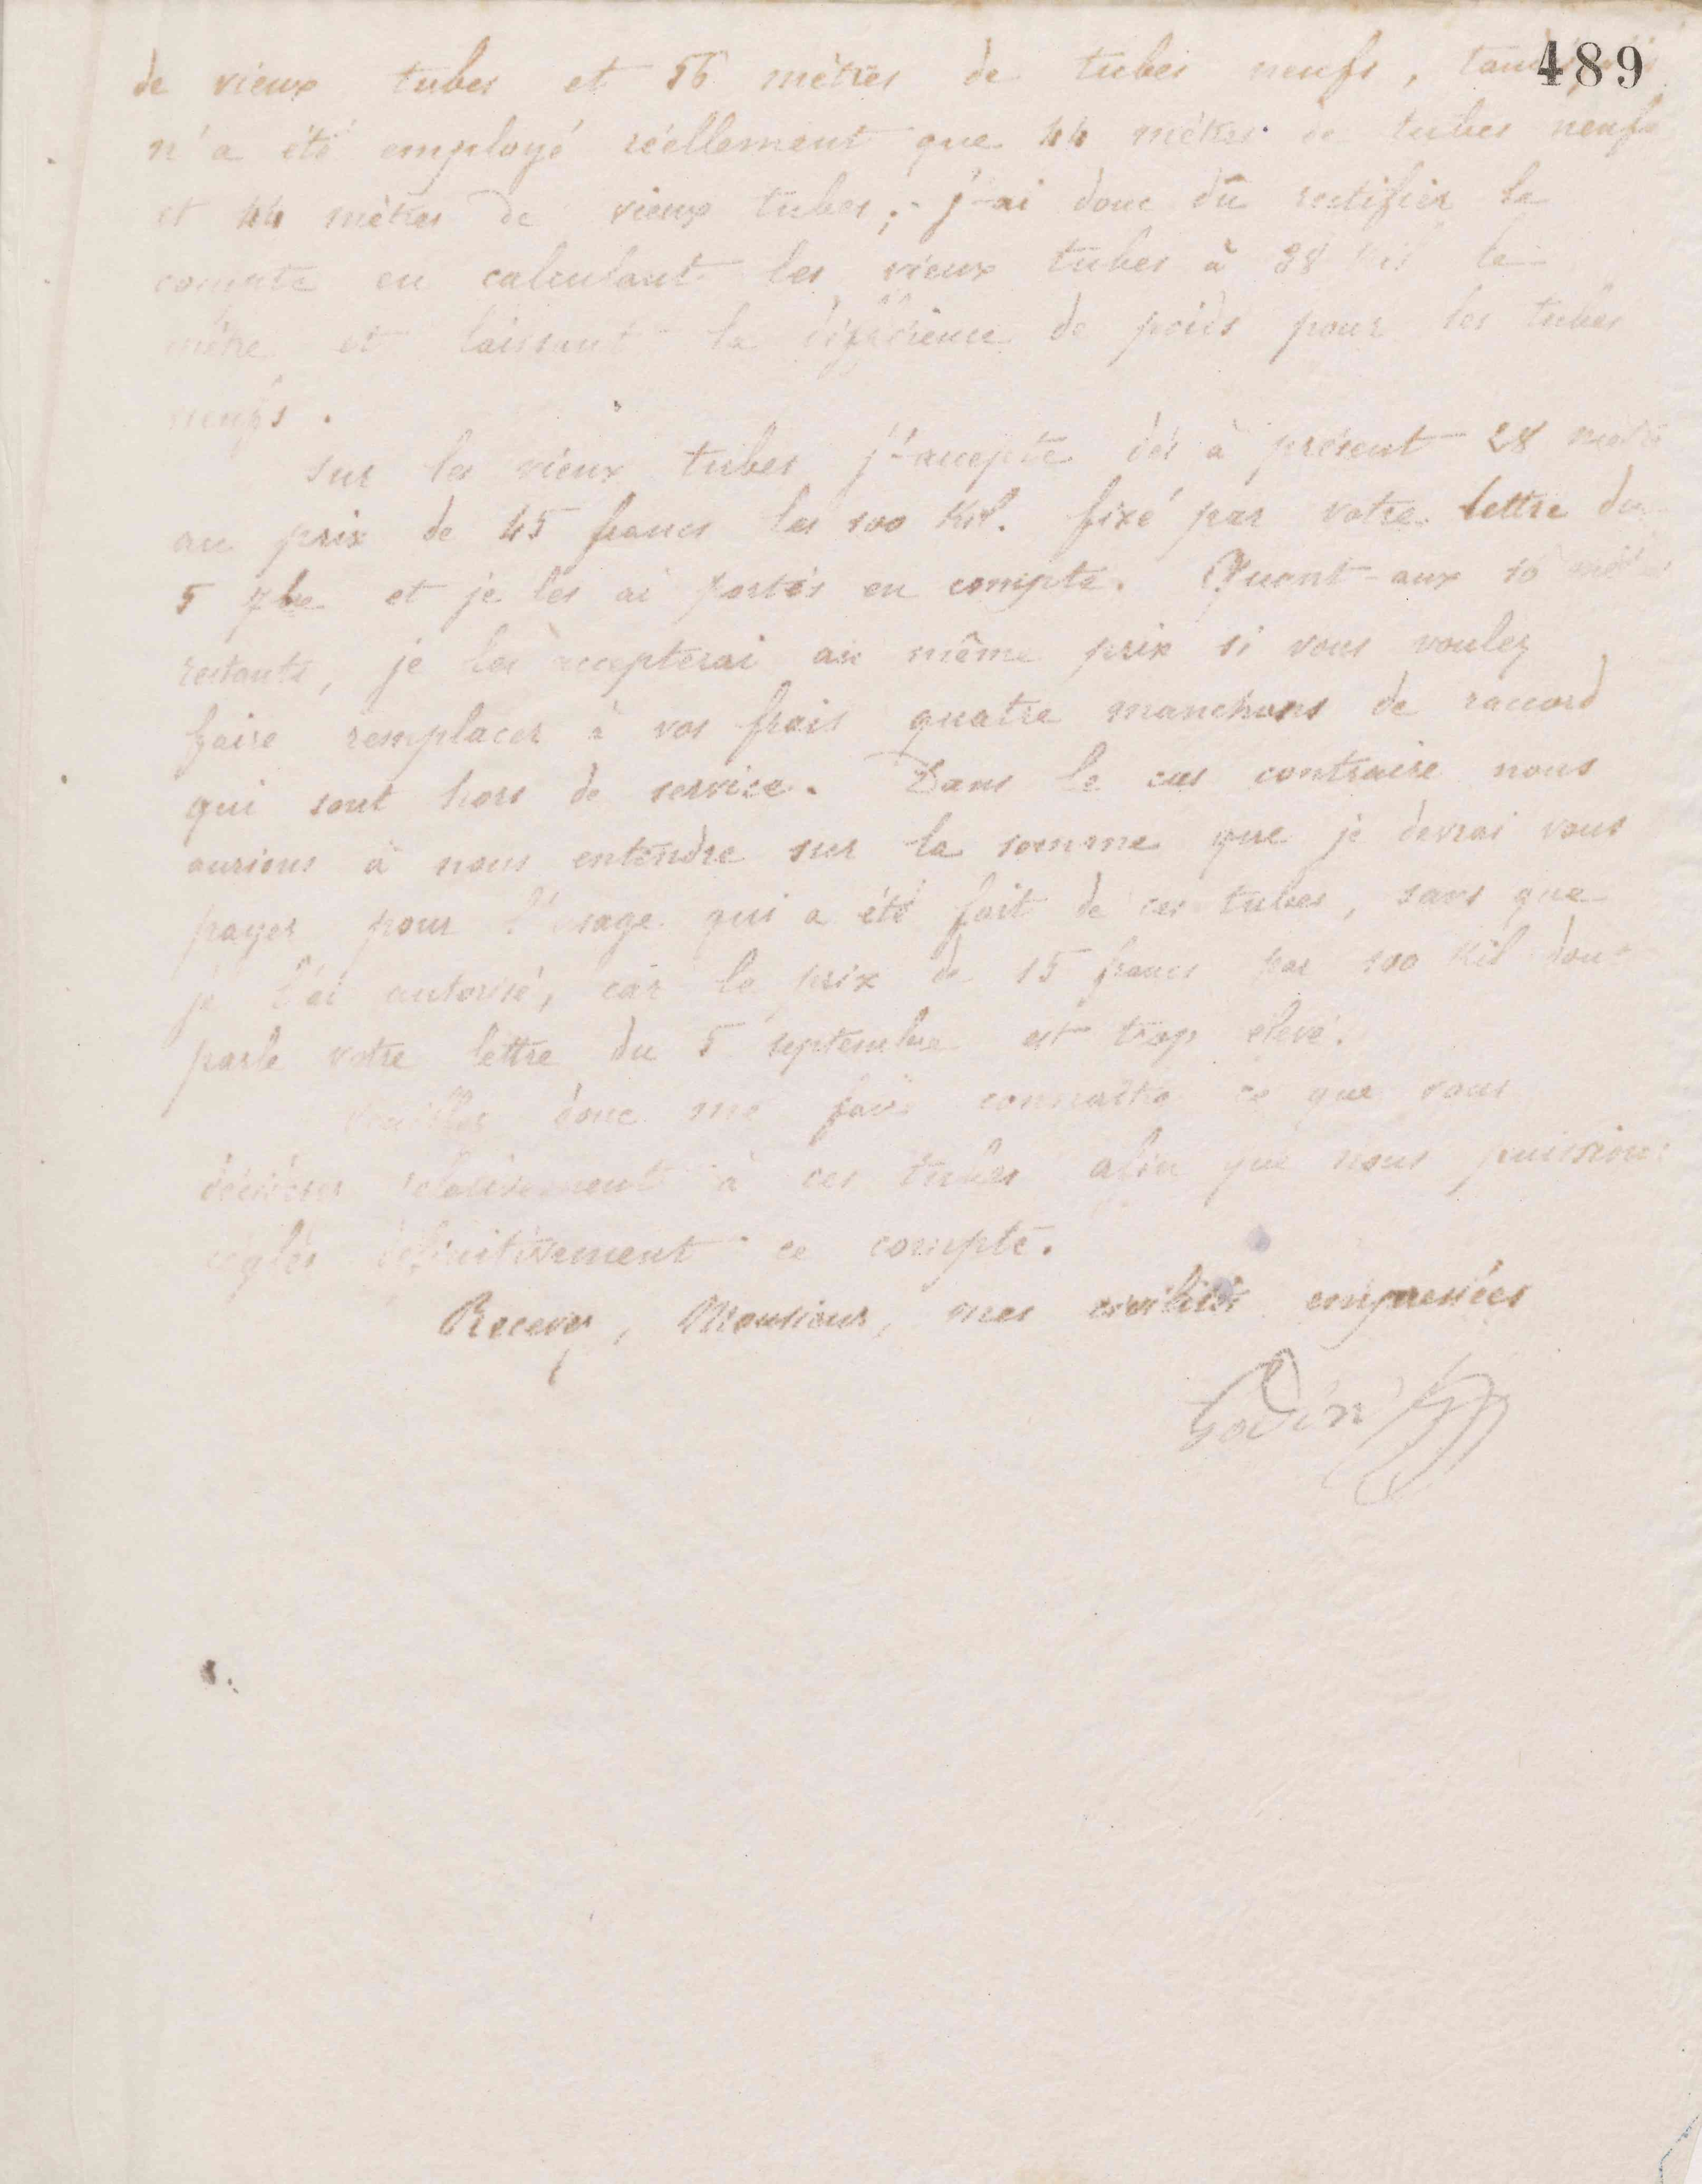 489
de vieux tubes et 56 mètres de tubes neufs,
n'a été employé réellement que 44 mètres de tubes neufs
et 44 mètres de vieux tubes; j'ai donc dû rectifier le
compte en calculant les vieux tubes à 38 kil le
mètre et laissant la différence de poids pour les tubes
neufs.
Sur les vieux tubes j'accepte dès à présent 28 mètres
au prix de 45 francs les 100 Kil. fixé par votre lettre du
5 7bre et je les ai portés en compte. Quant aux 16 mètres
restants, je les accepterai au même prix si vous voulez
faire remplacer à vos frais quatre manchons de raccord
qui sont hors de service. Dans le cas contraire nous
aurions à nous entendre sur la somme que je devrai vous
payer pour l'usage qui a été fait de ces tubes, sans que
je l'ai autorisé, car le prix de 15 francs par 100 Kil dont
parle votre lettre du 5 septembre est trop élevé.
Veuillez donc me faire connaître ce que vous
déciderez relativement à ces tubes afin que nous puissions
régler définitivement ce compte.
Recevez, Monsieur, mes civilités empressées
Godin